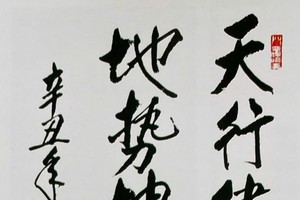 天行健
地势坤
辛丑年